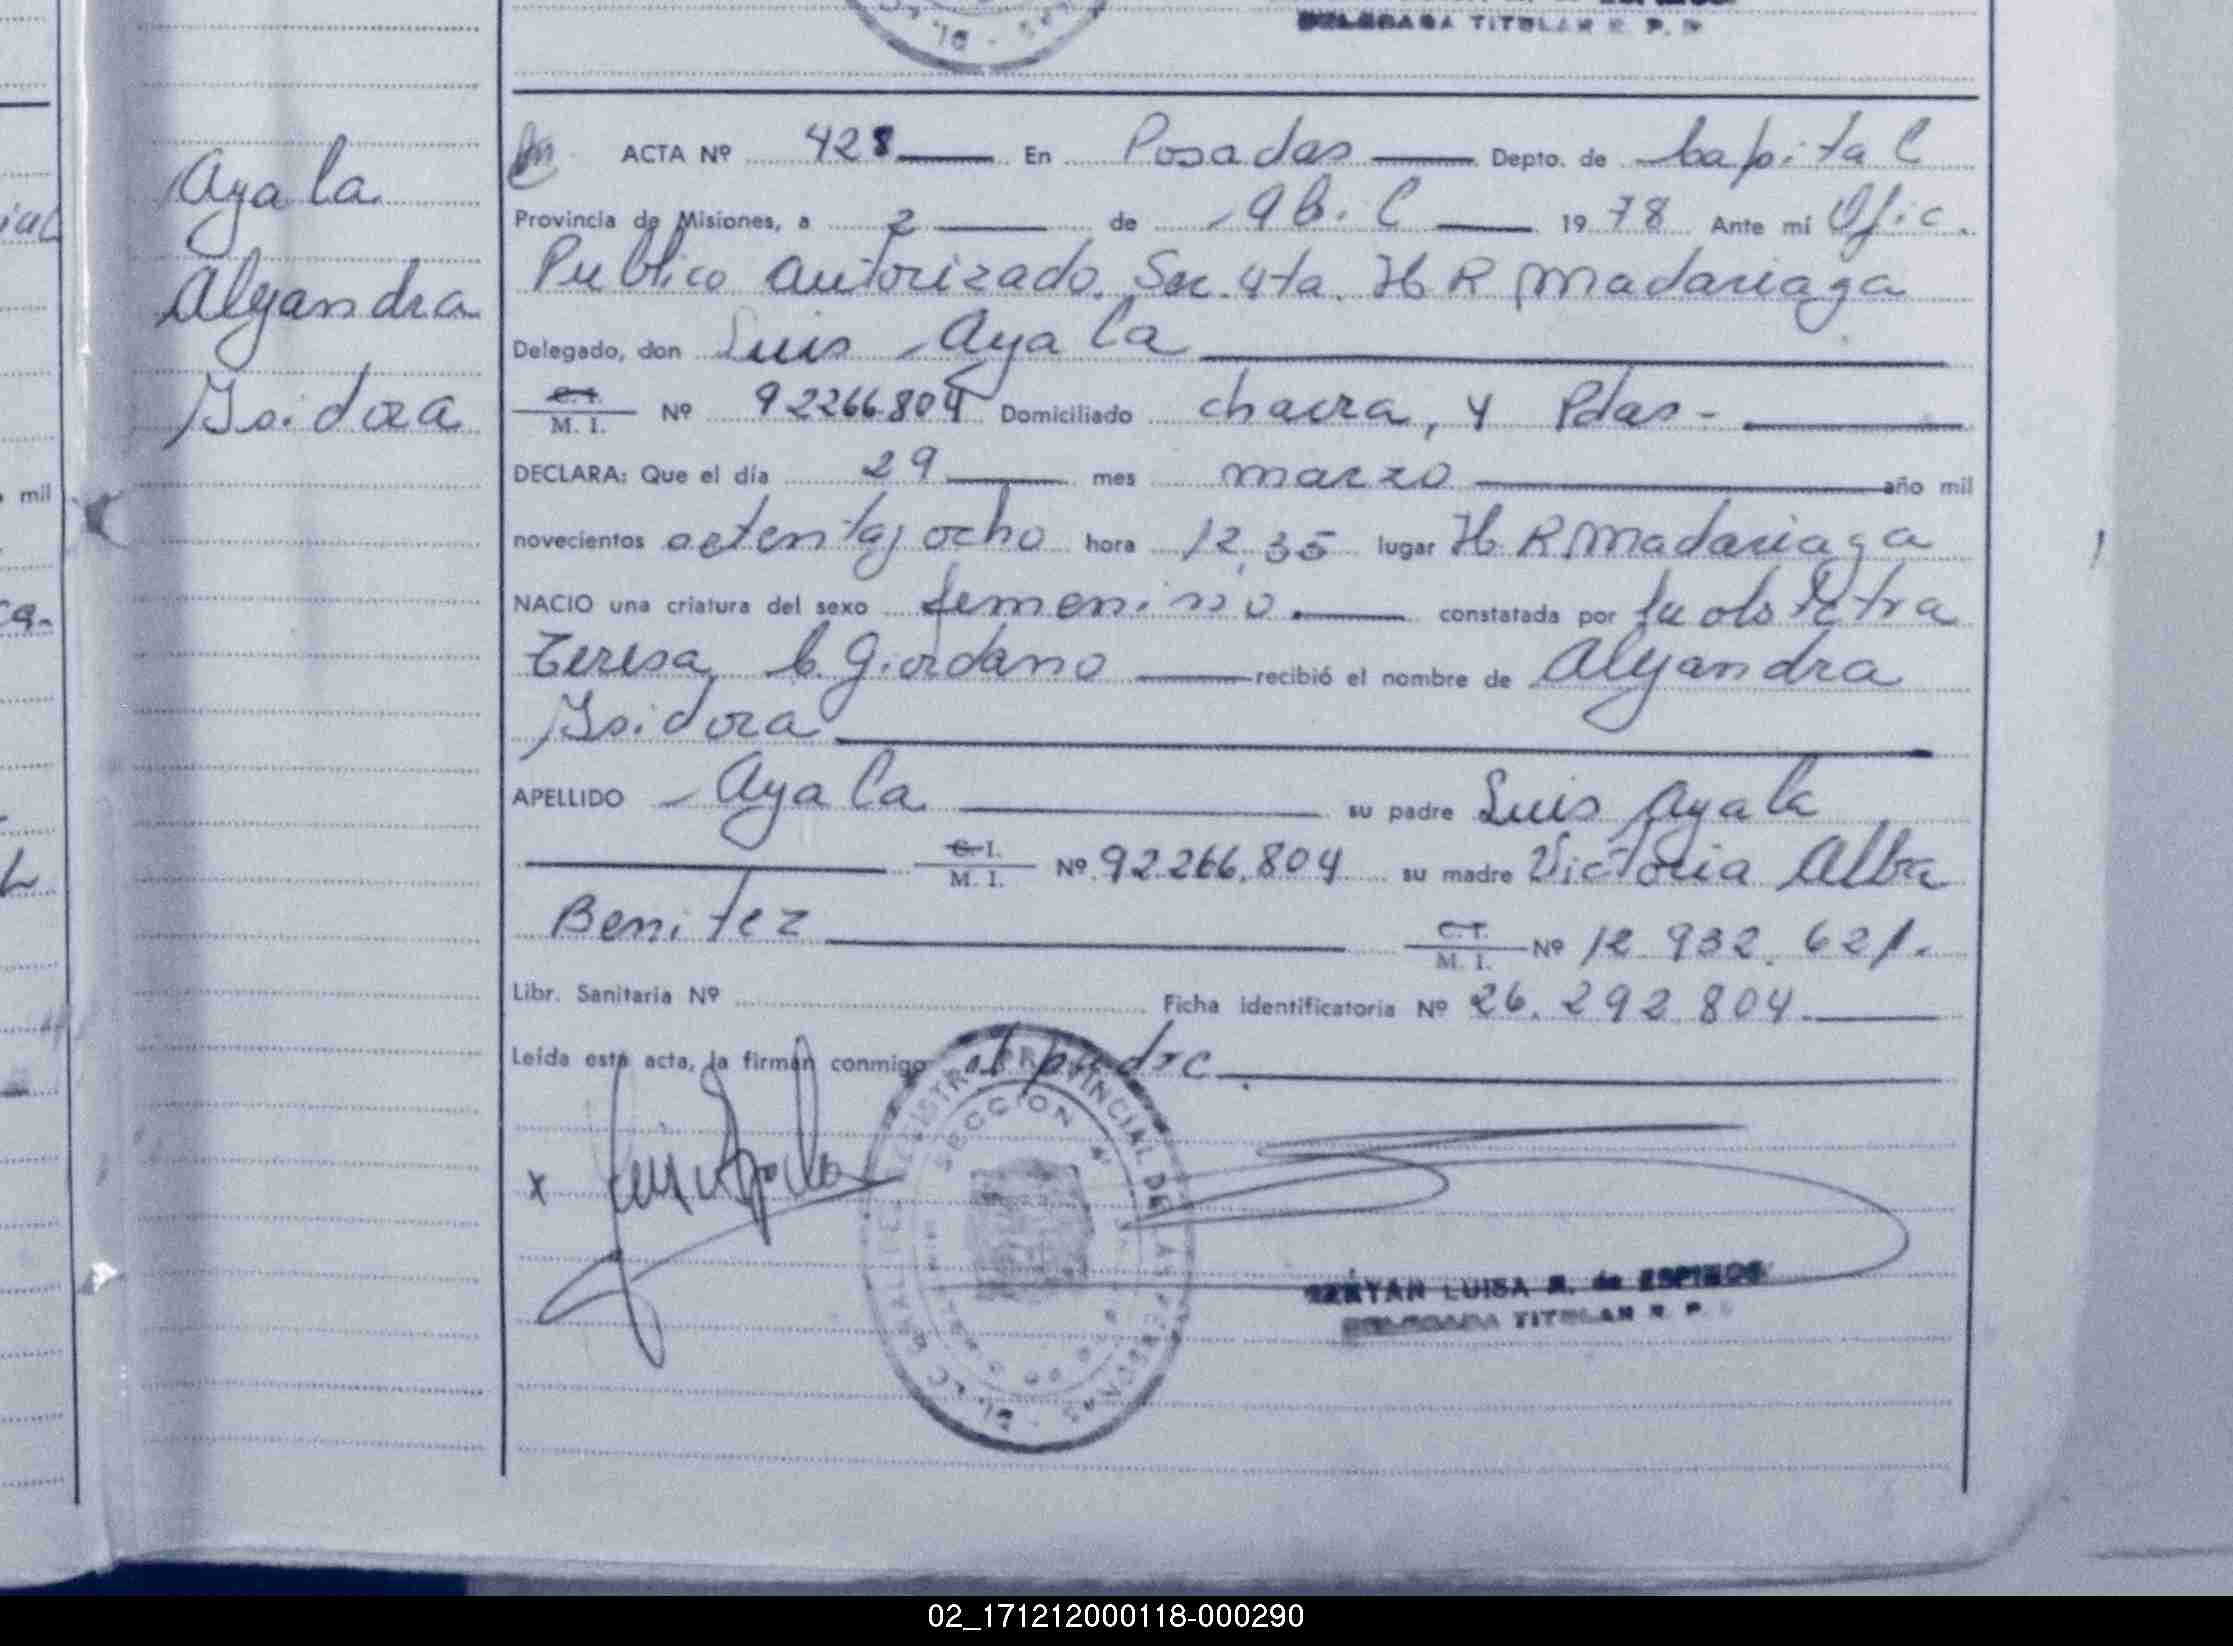 DELEGADA TITULAR R. P.
Ayala
Alejandra
Isidora
ACTA Nº 428 En Posadas Depto. de Capital
Provincia de Misiones, a 2 de Abril 1978 Ante mí Ofic.
Publico autorizado. Sec. 4ta. H R Madariaga
Delegado, don Luis Ayala
C.I.
M. I. Nº 92266.804 Domiciliado chacra, 4 Pdas-
DECLARA: Que el día 29 mes marzo año mil
novecientos setenta y ocho hora 12,35 lugar H R Madariaga
NACIO una criatura del sexo femenino. constatada por la obstetra
Teresa C. Giordano recibió el nombre de Alejandra
Isidora
APELLIDO Ayala su padre Luis Ayala
C. I.
M. I. Nº 92.266.804 su madre Victoria Alba
Benitez C.I.
M. I. Nº 12.932.621.
Libr. Sanitaria Nº Ficha identificatoria Nº 26.292.804.
Leída esta acta, la firman conmigo el padre.
x Luis Ayala
REGISTRO PROVINCIAL DE LAS PERSONAS
SECCION 4
LUISA R. de ESPINOS
DELEGADA TITULAR R. P.
mil
02_171212000118-000290